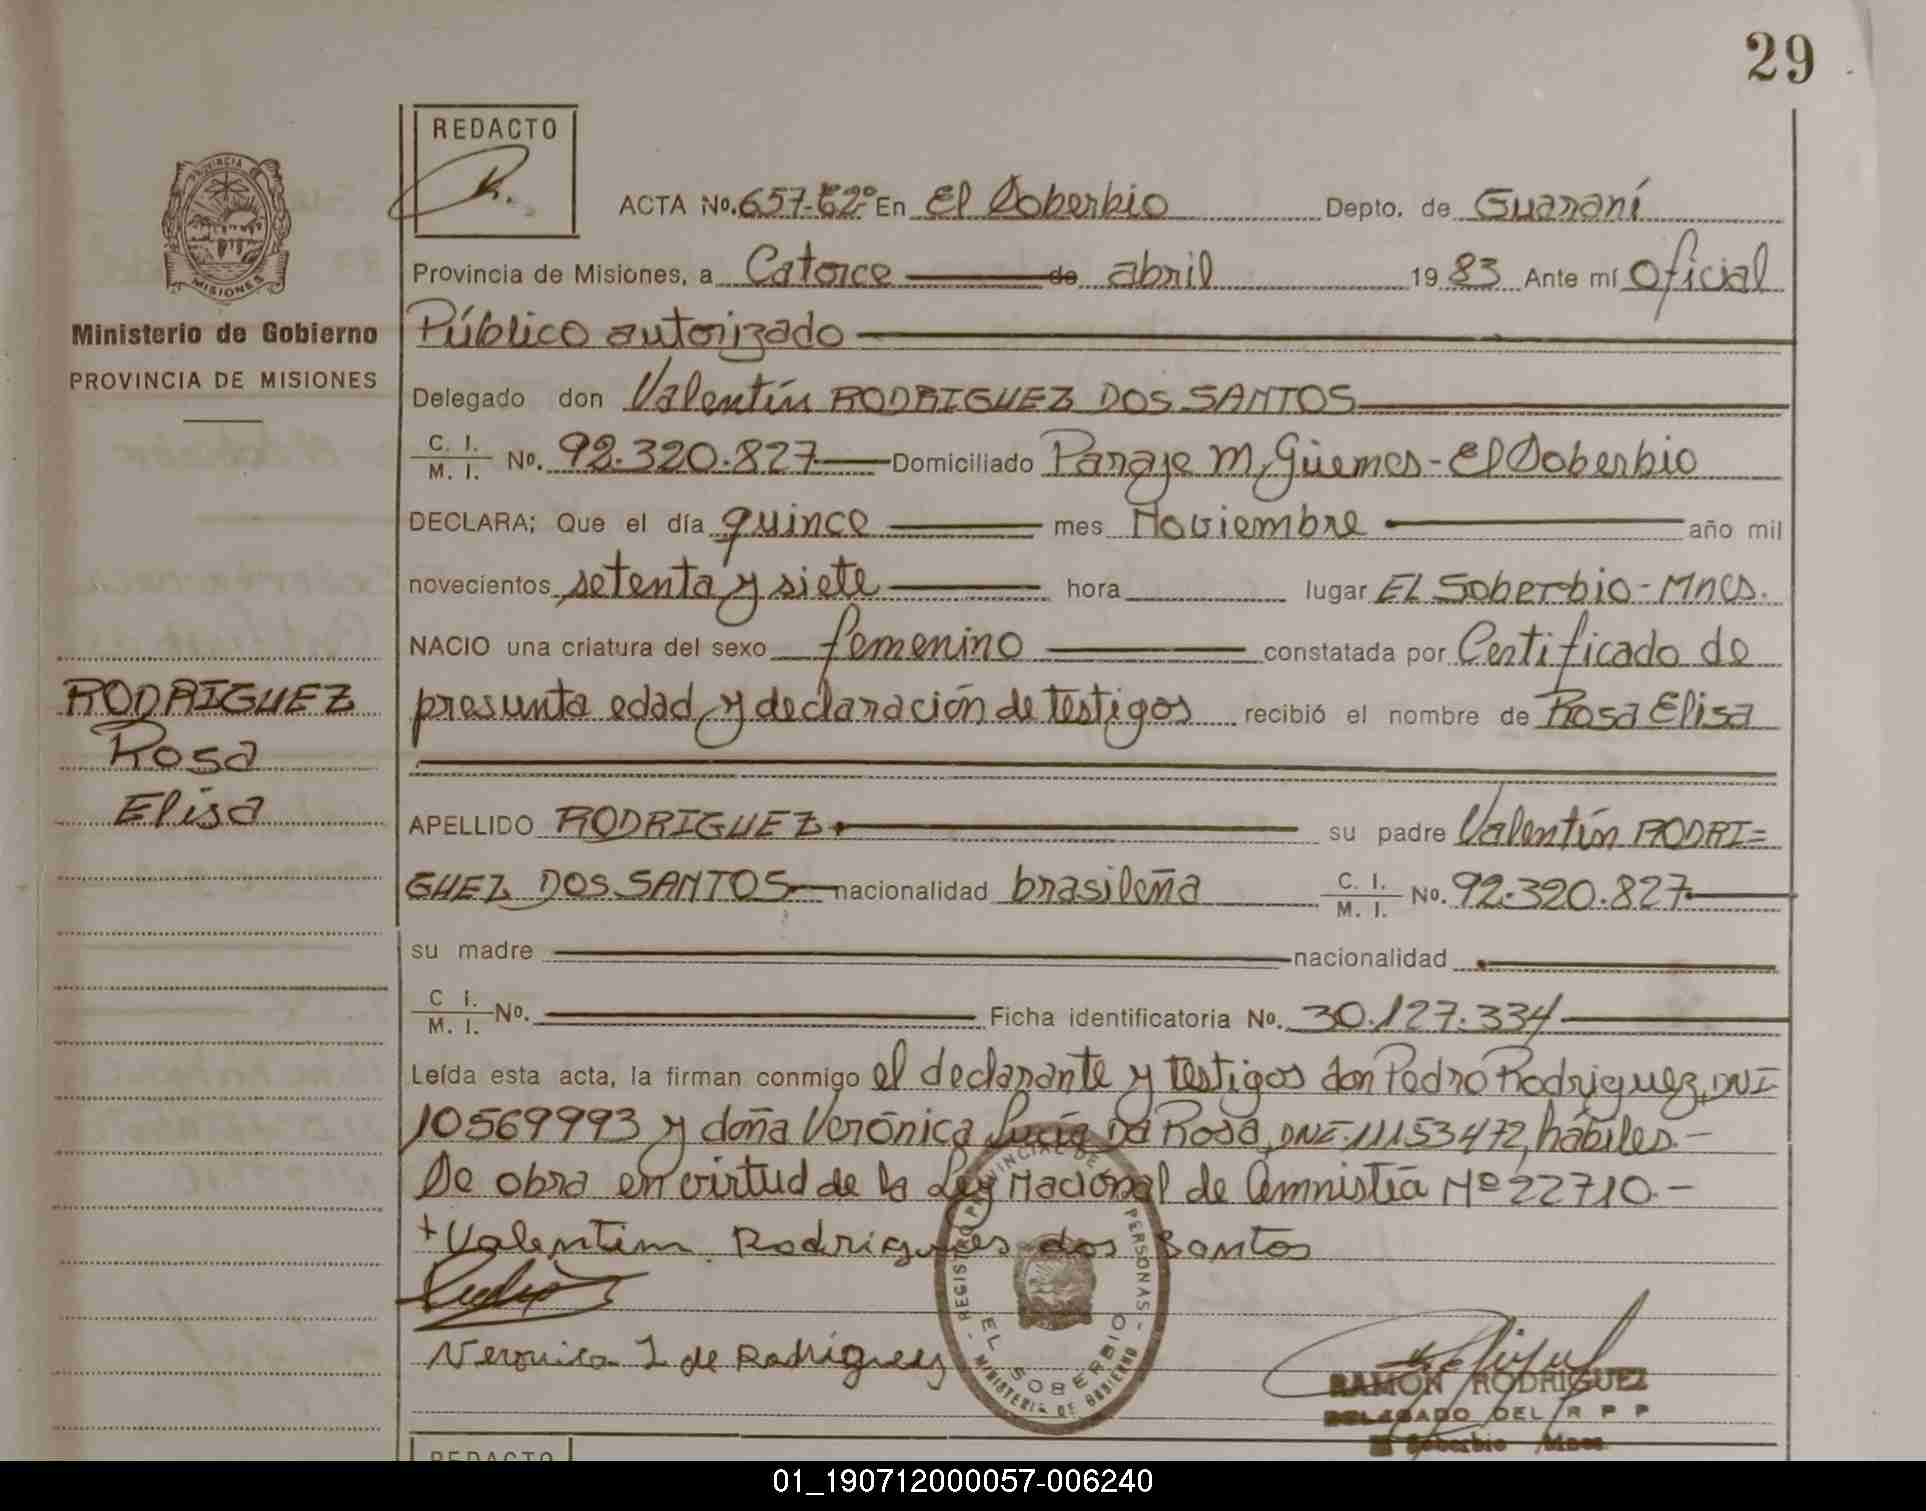 29
REDACTO
ACTA No. 657-Eº En El Soberbio Depto. de Guaraní
PROVINCIA
MISIONES
Provincia de Misiones, a Catorce de abril 1983 Ante mí Oficial
Ministerio de Gobierno
Público autorizado
PROVINCIA DE MISIONES
Delegado don Valentín RODRIGUEZ DOS SANTOS
C. I. M. I. No. 92.320.827 Domiciliado Paraje M. Güemes - El Soberbio
DECLARA; Que el día quince mes Noviembre año mil
novecientos setenta y siete hora lugar EL Soberbio - Mnes.
NACIO una criatura del sexo femenino constatada por Certificado de
RODRIGUEZ
Rosa
Elisa
presunta edad y declaración de testigos recibió el nombre de Rosa Elisa
APELLIDO RODRIGUEZ su padre Valentín RODRI=
GUEZ DOS SANTOS nacionalidad brasileña C. I. M. I. No. 92.320.827
su madre nacionalidad
C I. M. I. No. Ficha identificatoria No. 30.127.334
Leída esta acta, la firman conmigo el declarante y testigos don Pedro Rodriguez, DNI
10569993 y doña Verónica Lucía Da Rosa, DNI. 11153472, hábiles.-
Se obra en virtud de la Ley Nacional de Amnistía Nº 22710.-
+ Valentim Rodrigues dos Santos
Veronica L de Rodriguez
REGISTRO PROVINCIAL DE PERSONAS
EL SOBERBIO
MINISTERIO DE GOBIERNO
RAMON RODRIGUEZ
DELEGADO DEL R P P
El Soberbio Mnes
REDACTO
01_190712000057-006240